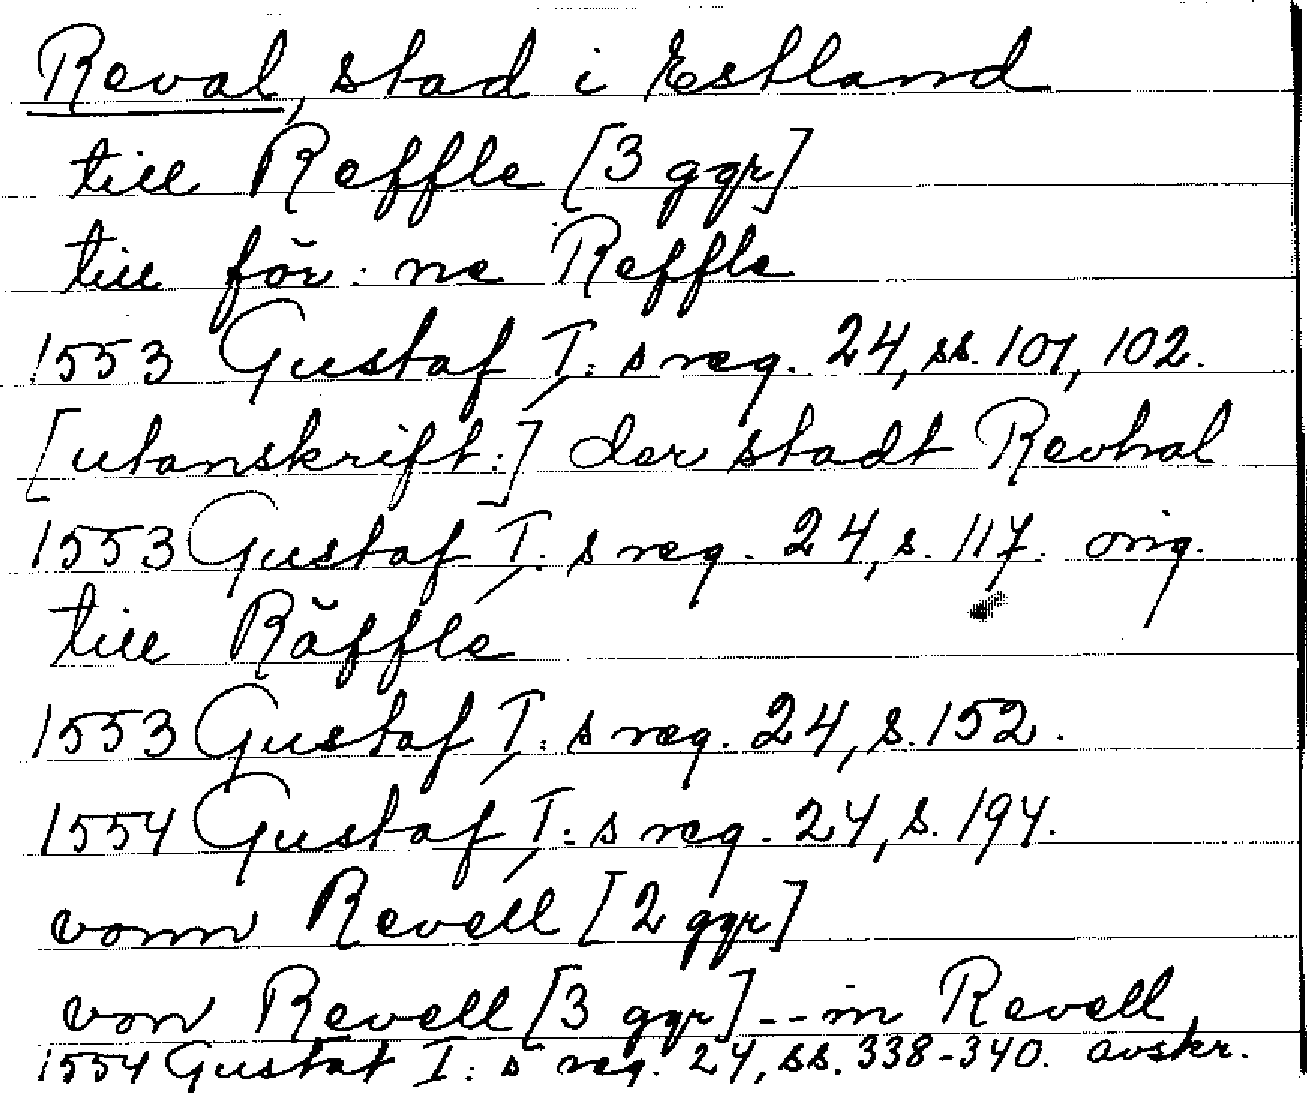 Reval, stad i Estland
till Reffle [3 ggr]
till för: ne Reffle
1553 Gustaf I: s reg. 24, ss. 101, 102.
[utanskrift:] der stadt Revhal
1553 Gustaf I: s reg. 24, s. 117. orig.
till Räffle
1553 Gustaf I: s reg. 24, s. 152.
1554 Gustaf I: s reg. 24, s. 194.
vonn Revell [2 ggr]
von Revell [3 ggr] -- in Revell
1554 Gustaf I: s reg. 24, ss. 338-340. avskr.